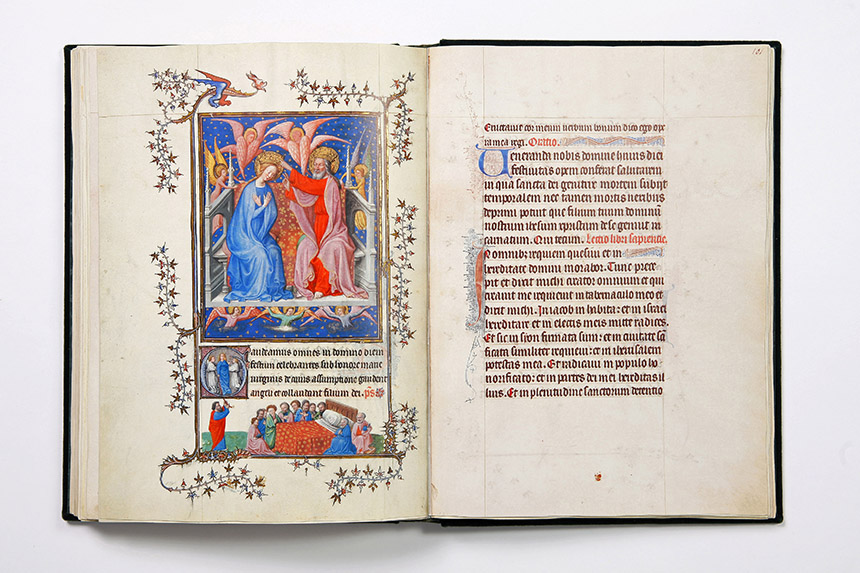 Gaudeamus omnes in domino diem
festum celebrantes sub honore marie
virginis de cuius assumptione gaudent
angeli et collaudant filium dei. ps
101
Eructauit cor meum uerbum bonum dico ego ope
ra mea regi. Oratio.
Ueneranda nobis domine huius diei
festiuitas opem conferat salutarem
in qua sancta dei genitrix mortem subiit
temporalem nec tamen mortis nexibus
deprimi potuit que filium tuum dominu
nostrum ihesum xpristum de se genuit in
carnatum. Qui tecum. Lectio libri sapientie.
In omnibz requiem quesiui et in
hereditate domini morabor. Tunc prece
pit et dixit michi creator omnium et qui
creauit me requieuit in tabernaculo meo et
dixit michi. In iacob inhabita: et in israel
hereditare et in electis meis mitte radices.
Et sic in sion firmata sum: et in ciuitate sa
ficata similiter requieui: et in iherusalem
potestas mea. Et radicaui in populo ho
norificato: et in partes dei mei hereditas il
lius. Et in plenitudine sanctorum detentio